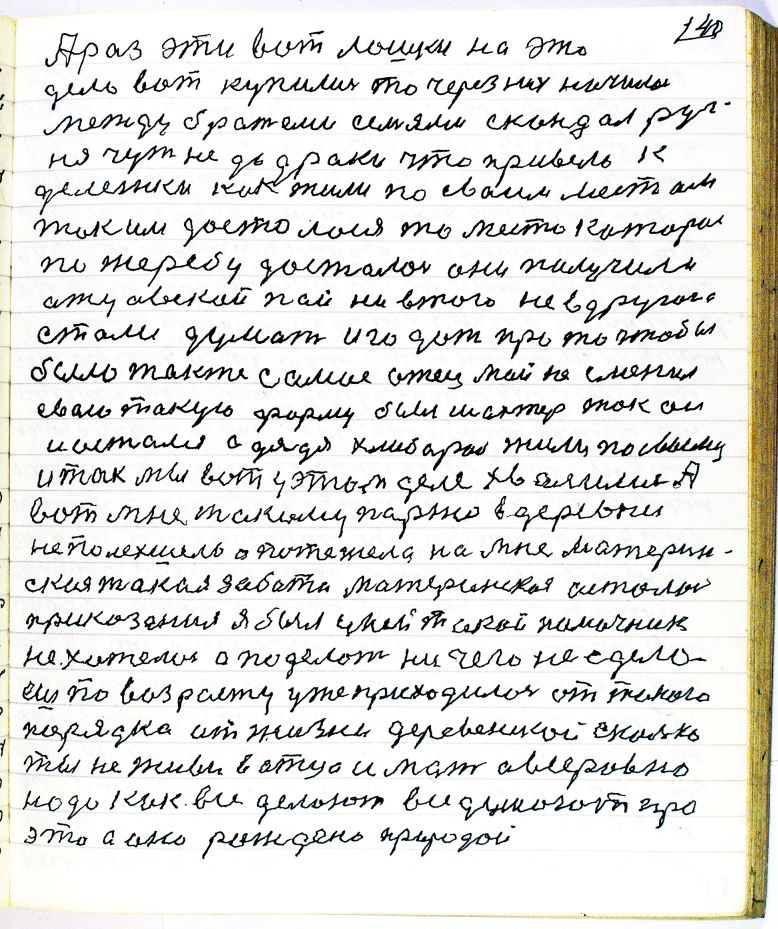 140
А раз эти вот лошки на это
дело вот купились то через них начила
между братами семями скандал руг-
ня чуть не до драки что привель к
деленжки как жили по сваим местам
таким досталося то место каторое
по жеребу досталося они палучили
атцовской пай ни в того не в другога
стали думат и годат про то чтобы
было такте самое отец май не сменил
сваю такую форму был шахтер так он
и остался а дядя хлибароб жили по своему
и так мы вот у этом деле хвалились А
вот мне такому парню в деревни
не полехшель а потежела на мне материн-
ская такая забота материнская астался
приказания я был у ней такой памочник
не хателося а поделат ни чего не сдела-
еш по возрасту уже приходилося от такого
парядка от жизни деревенской сколко
ты не живи в отца и мат авсеровно
надо как все делают все думают про
это а оно рождено природой